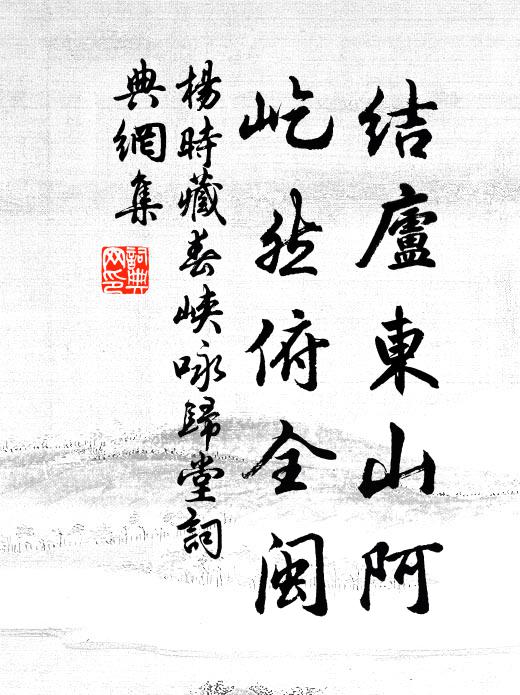 結廬東山阿
屹然俯全閩
楊時藏春峽咏歸堂詞
典網集
詞典
网印